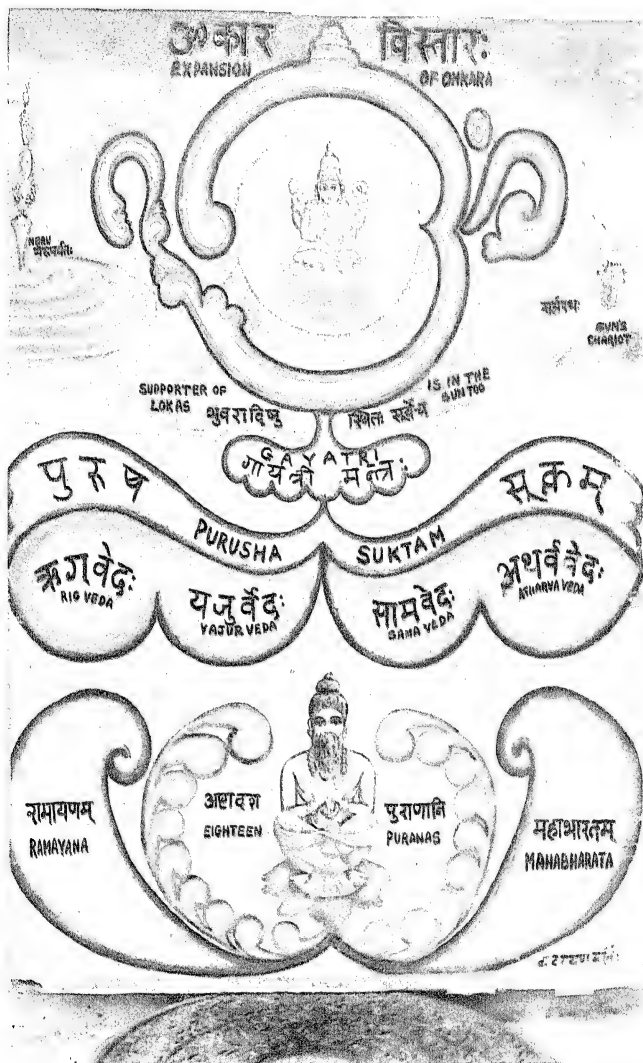 ॐकार विस्तारः
EXPANSION OF ONKARA
MERU
SUN'S
CHARIOT
SUPPORTER OF
LOKAS
IS IN THE
SUN TOO
भुवरादिषु
GAYATRI
गायत्री मन्त्रः
पुरुष सूक्तम्
PURUSHA SUKTAM
ऋगवेदः
RIG VEDA
यजुर्वेदः
YAJUR VEDA
सामवेदः
SAMA VEDA
अथर्ववेदः
ATHARVA VEDA
रामायणम्
RAMAYANA
अष्टादश
EIGHTEEN
पुराणानि
PURANAS
महाभारतम्
MAHABHARATA